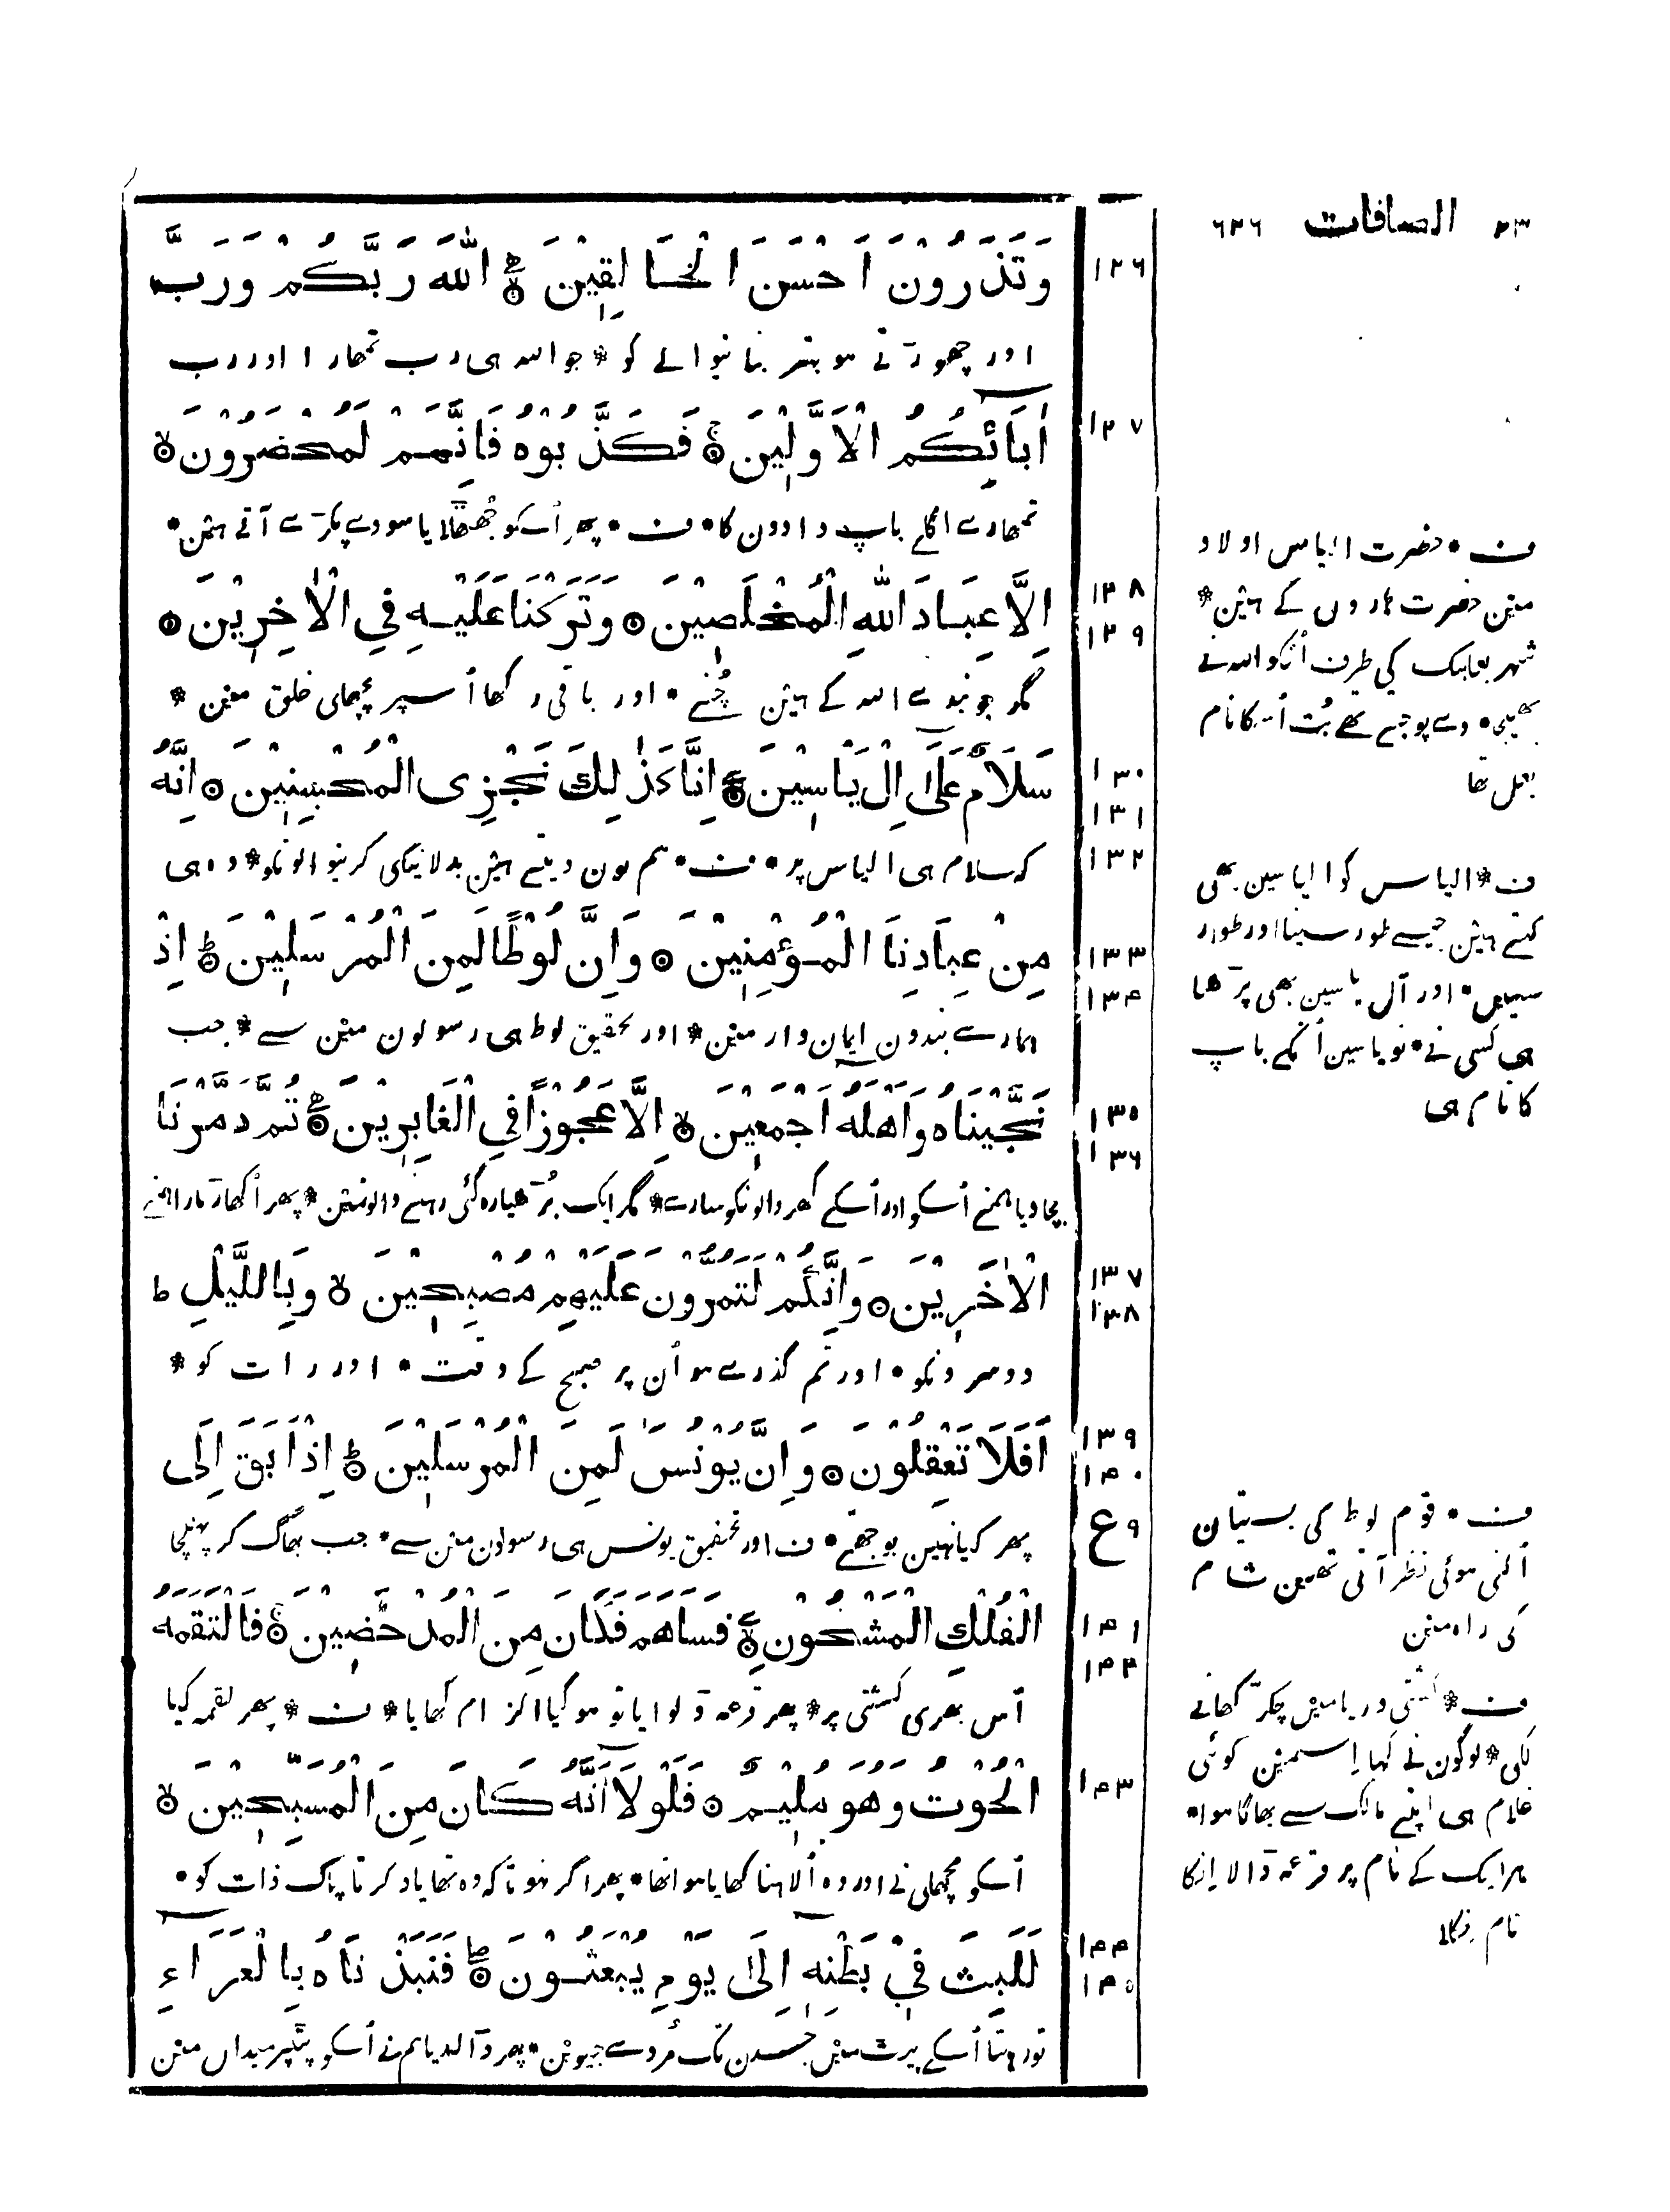 ٢٣ الصافات ٦٣٦
١٢٦
وَتَذَرُوْنَ اَحْسَنَ الْخَالِقِيْنَ ۙ اللّٰهَ رَبَّكُمْ وَرَبَّ
اور چھورتے هو بهتر بنانیوالے کو * جو الله هی رب تمهارا اور رب
١٢٧
اٰبَائِكُمُ الْاَوَّلِيْنَ ۙ فَكَذَّبُوْهُ فَاِنَّهُمْ لَمُحْضَرُوْنَ ۙ
تمهارے اگلے باپ دادون کا * ف * پهر اُسکو جُھٹھلایا سو وے پکڑے آتے هین *
١٢٨
١٢٩
اِلَّا عِبَادَ اللّٰهِ الْمُخْلَصِيْنَ ۞ وَتَرَكْنَا عَلَيْهِ فِي الْاٰخِرِيْنَ ۞
مگر جو بندے الله کے هین چُنے * اور باقی رکھا اُسپر پچھلی خلق مین *
١٣٠
١٣١
سَلَامٌ عَلَىٰ اِلْ يَاسِيْنَ ۞ اِنَّا كَذٰلِكَ نَجْزِى الْمُحْسِنِيْنَ ۞ اِنَّهُ
١٣٢
که سلام هی الیاس پر * ف * هم یون دیتے هین بدلا نیکی کرنیوالونکو * وه هی
مِنْ عِبَادِنَا الْمُؤْمِنِيْنَ ۞ وَاِنَّ لُوْطًا لَمِنَ الْمُرْسَلِيْنَ ۞ اِذْ
١٣٣
١٣٤
همارے بندون ایمان دار مین * اور تحقیق لوط هی رسولون مین سے * جب
١٣٥
١٣٦
نَجَّيْنَاهُ وَاَهْلَهُ اَجْمَعِيْنَ ۙ اِلَّا عَجُوْزًا فِي الْغَابِرِيْنَ ۞ ثُمَّ دَمَّرْنَا
بچا دیا همنے اُسکو اور اُسکے گھر والونکو سارے * مگر ایک بُڑھیا ره گئی رهنے والونمین * پهر اُکھاڑ مارا همنے
١٣٧
١٣٨
الْاٰخَرِيْنَ ۞ وَاِنَّكُمْ لَتَمُرُّوْنَ عَلَيْهِمْ مُصْبِحِيْنَ ۙ وَبِاللَّيْلِ ط
دوسرونکو * اور تم گذرے هو اُن پر صبح کے وقت * اور رات کو *
١٣٩
١٤٠
اَفَلَا تَعْقِلُوْنَ ۞ وَاِنَّ يُوْنُسَ لَمِنَ الْمُرْسَلِيْنَ ۞ اِذْ اَبَقَ اِلَى
ع ٩
پهر کیا نهین بوجھتے * ف اور تحقیق یونس هی رسولون مین سے * جب بھاگ کر پهنچا
١٤١
١٤٢
الْفُلْكِ الْمَشْحُوْنِ ۙ فَسَاهَمَ فَكَانَ مِنَ الْمُدْحَضِيْنَ ۞ فَالْتَقَمَهُ
اُس بھری کشتی پر * پهر قرعه ڈلوایا تو هو گیا الزام کھایا * ف * پهر لقمه کیا
١٤٣
الْحُوْتُ وَهُوَ مُلِيْمٌ ۞ فَلَوْلَا اَنَّهُ كَانَ مِنَ الْمُسَبِّحِيْنَ ۙ
اُسکو مچھلی نے اور وه اُلاهنا کھایا هوا تھا * پهر اگر نهوتا که وه تھا یاد کرتا پاک ذات کو *
١٤٤
١٤٥
لَلَبِثَ فِيْ بَطْنِهِ اِلَىٰ يَوْمِ يُبْعَثُوْنَ ۞ فَنَبَذْنَاهُ بِالْعَرَاءِ
تو رهتا اُسکے پیٹ مین جسدن تک مُردے جیوین * پهر ڈالدیا هم نے اُسکو پٹپر میدان مین
ف * حضرت الیاس اولاد
مین حضرت هارون کے هین *
شهر بعلبک کی طرف اُنکو الله نے
بھیجا * وے پوجتے تھے بُت اُسکا نام
بعل تھا
ف * الیاس کو الیاسین بھی
کهتے هین جیسے طور سینا اور طور
سینین * اور آل یاسین بھی پڑھا
هی کسی نے * تو یاسین اُنکے باپ
کا نام هی
ف * قوم لوط کی بستیان
اُلٹی هوئی نظر آتی تھین شام
کی راه مین
ف * کشتی دریا مین چکر کھانے
لگی * لوگون نے کها اِسمین کوئی
غلام هی اپنے مالک سے بھاگا هوا *
هر ایک کے نام پر قرعه ڈالا اِنکا
نام نکلا